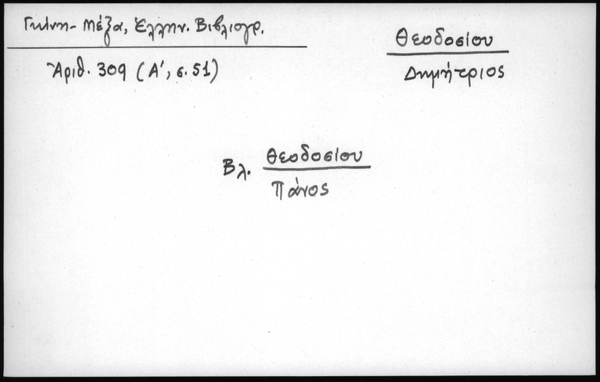 Γκίνη - Μέξα, Ἑλλην. Βιβλιογρ.
Ἀριθ. 309 (Α', σ. 51)
Θεοδοσίου
Δημήτριος
Βλ. Θεοδοσίου
Πάνος